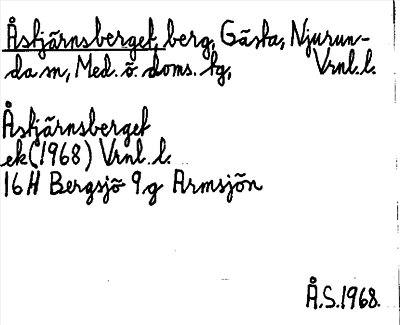 Åstjärnsberget, berg, Gästa, Njurun-
da sn, Med. ö. doms. tg, Vrnl. l.
Åstjärnsberget
ek (1968) Vrnl. l.
16 H Bergsjö 9 g Armsjön
Å.S. 1968.